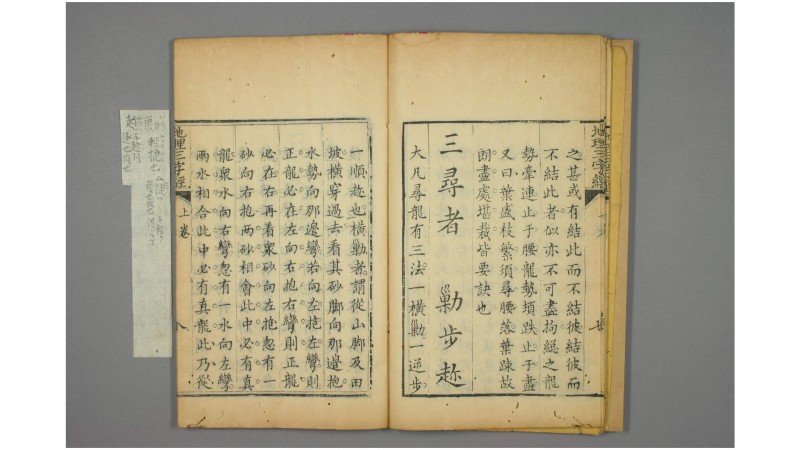 之甚或有結此而不結彼結彼而
不結此者似亦不可盡拘緫之龍
勢牽連止于腰龍勢頓跌止于盡
又曰葉盛枝繁須尋腰落葉疎故
朗盡處堪裁皆要訣也
三尋者 勦步趂
大凡尋龍有三法一橫勦一逆步
地理三字經
一順趂也橫勦者謂從山脚及田
坡橫穿過去看其砂脚向那邊抱
水勢向那邊彎若向左抱左彎則
正龍必在左向右抱右彎則正龍
必在右再看衆砂向左抱忽有一
砂向右抱兩砂相會此中必有真
龍衆水向右彎忽有一水向左彎
兩水相合此中必有真龍此乃從
地理三字經
上卷
八